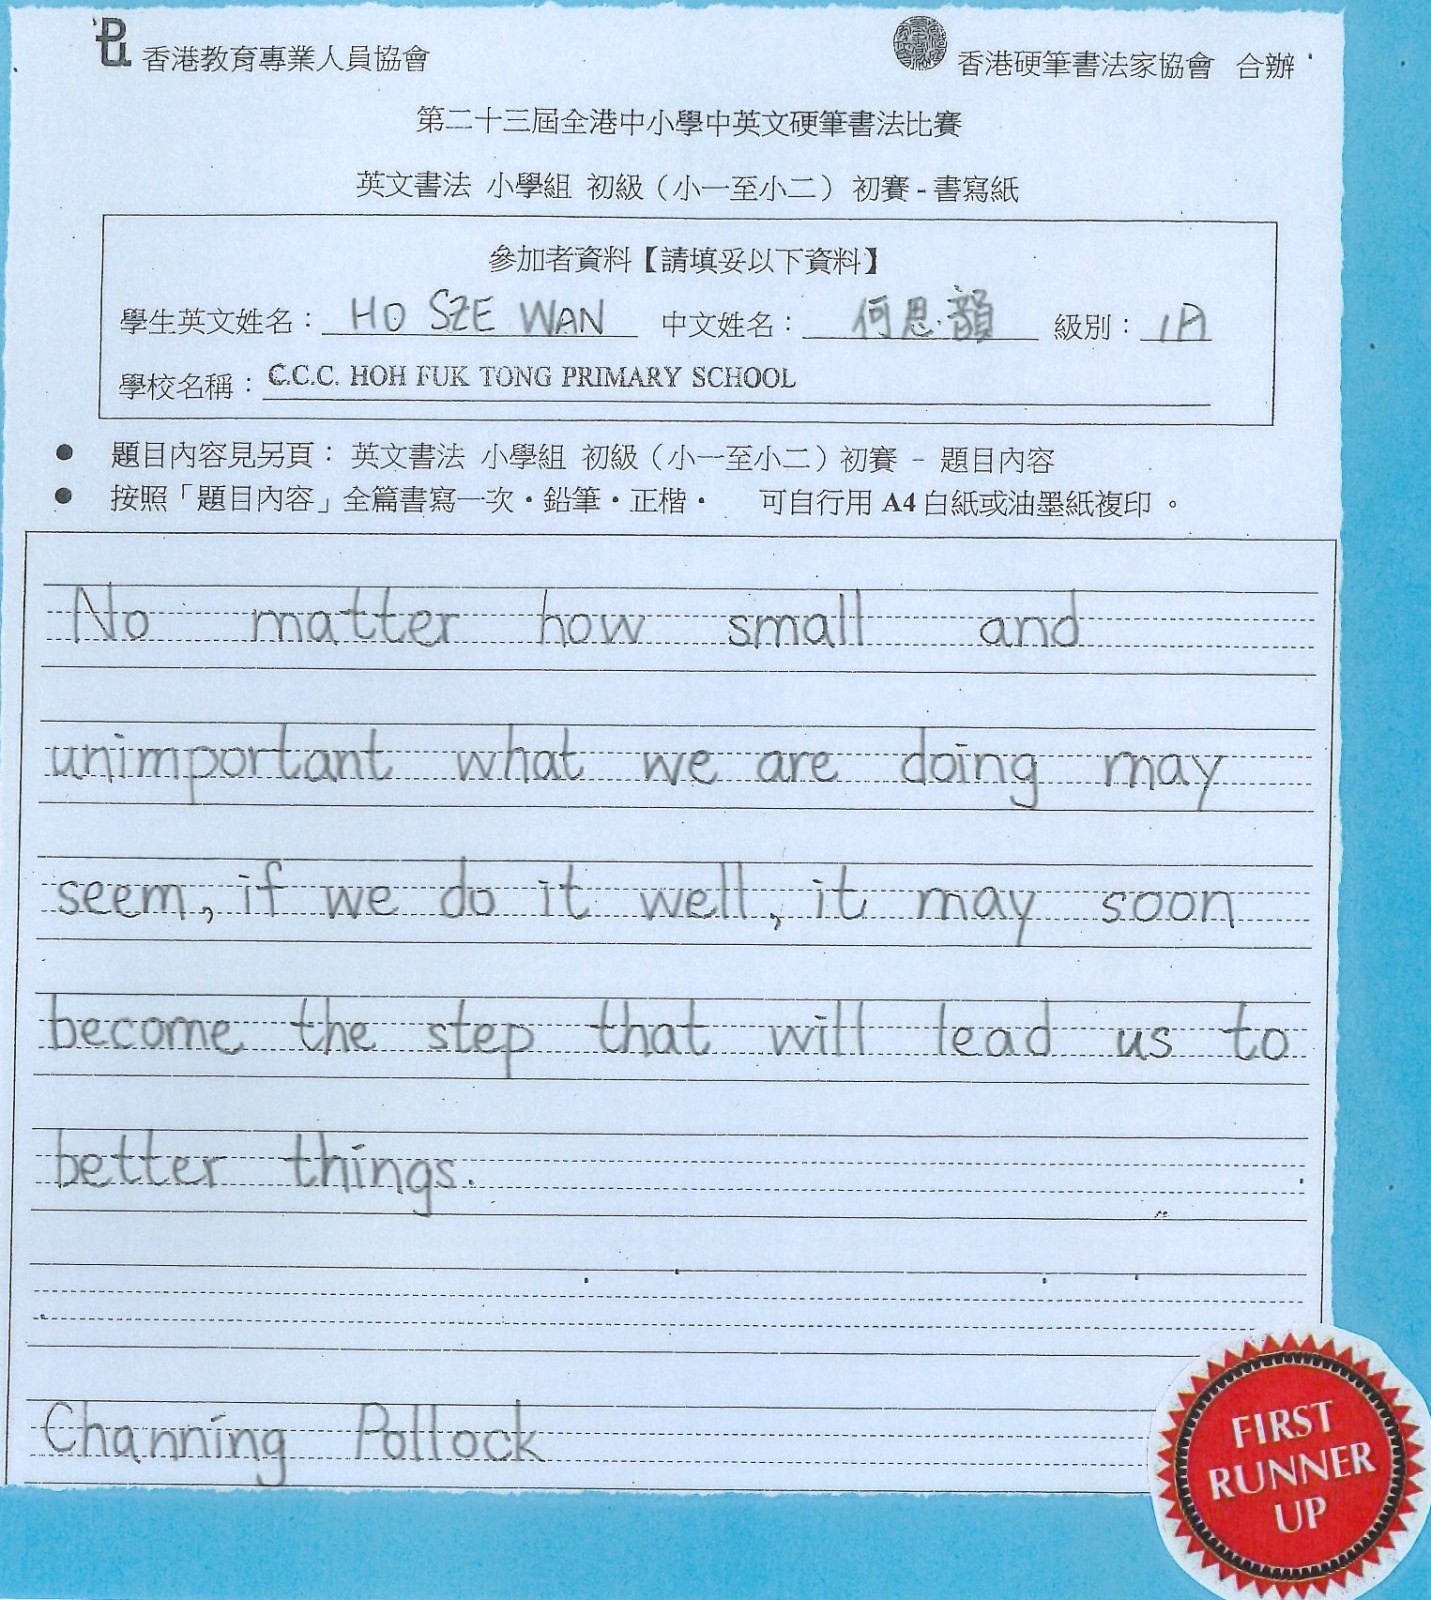 香港教育專業人員協會
香港硬筆書法家協會 合辦
第二十三屆全港中小學中英文硬筆書法比賽
英文書法 小學組 初級（小一至小二）初賽 - 書寫紙
參加者資料【請填妥以下資料】
學生英文姓名： HO SZE WAN 中文姓名： 何思韻 級別： 1A
學校名稱： C.C.C. HOH FUK TONG PRIMARY SCHOOL
● 題目內容見另頁： 英文書法 小學組 初級（小一至小二）初賽 － 題目內容
● 按照「題目內容」全篇書寫一次・鉛筆・正楷・ 可自行用 A4 白紙或油墨紙複印。
No matter how small and
unimportant what we are doing may
seem, if we do it well, it may soon
become the step that will lead us to
better things.
Channing Pollock
FIRST
RUNNER
UP